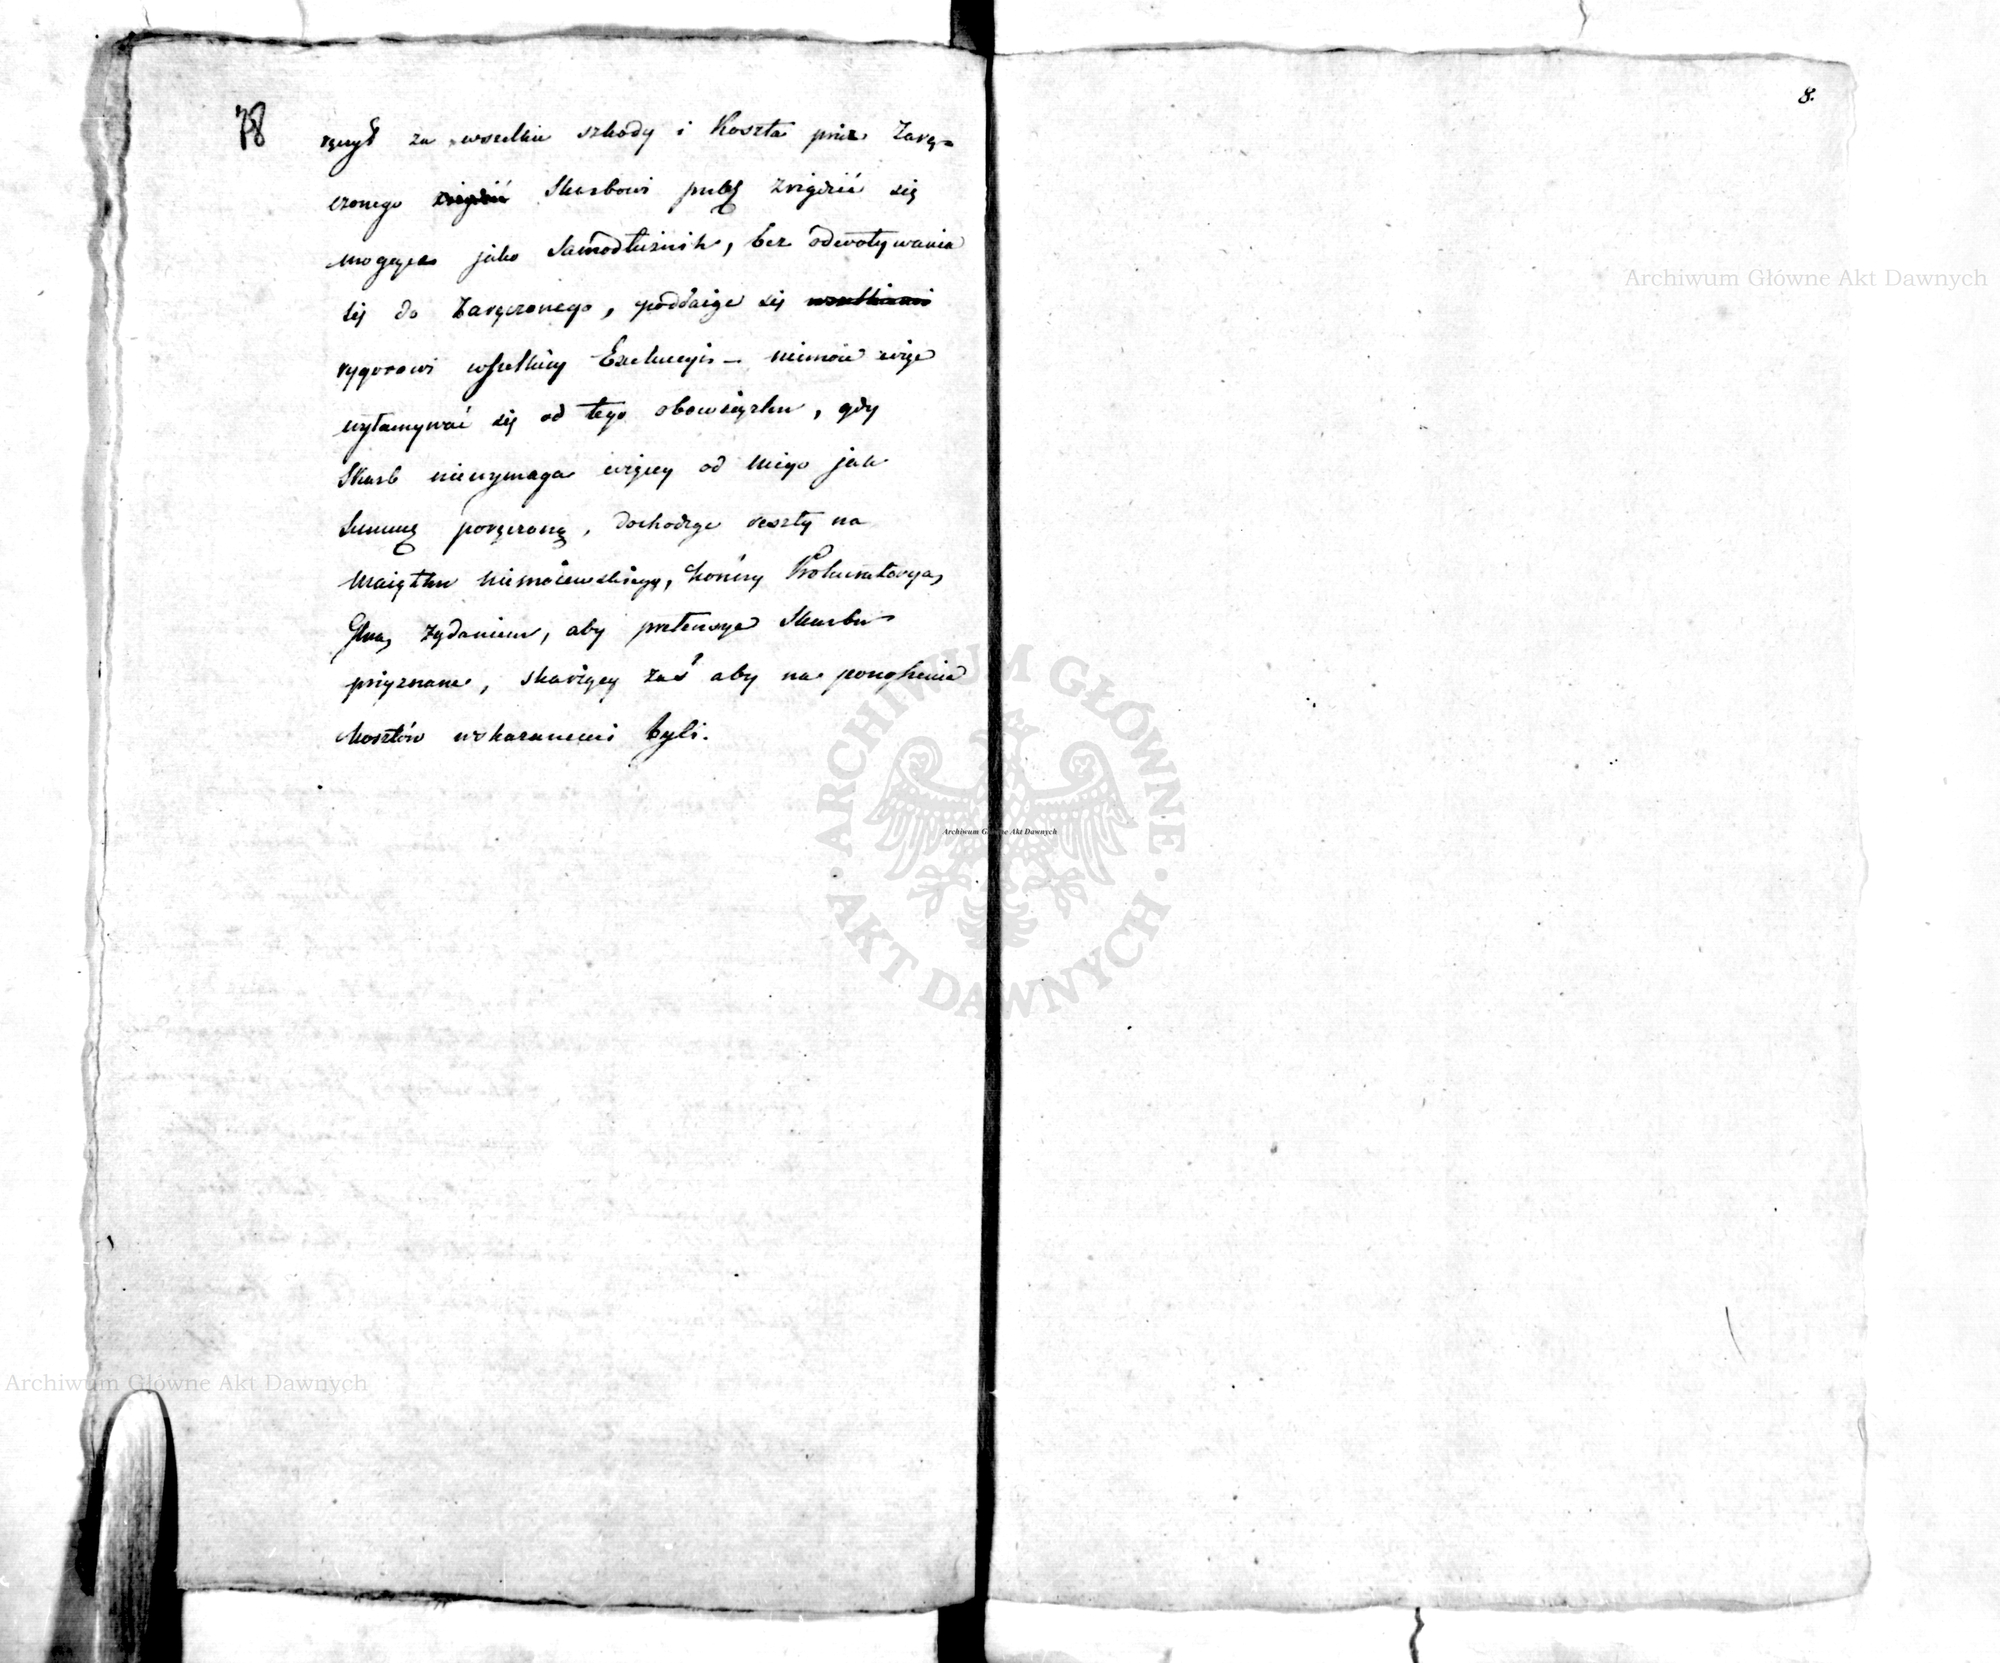 78
ręczył za wszelkie szkody i Koszta przez Zarę-
czonego Skarbowi publ zrządzić się
mogące jako Samodłużnik, bez odwoływania
się do Zaręczonego, poddaiąc się wszelkiemi
rygorowi wszelkiey Exekucyi – niemoże więc
wyłamywać się od tego obowiązku, gdy
Skarb niewymaga więcey od niego jak
Summę poręczoną, dochodząc reszty na
Maiątku Niemoiewskiego, kończy Prokuratorya
Gna żądaniem, aby pretensye Skarbu
przyznane, skarżący zaś aby na ponoszenie
kosztów wskazanemi byli.
8.
Archiwum Główne Akt Dawnych
ARCHIWUM GŁÓWNE AKT DAWNYCH
Archiwum Główne Akt Dawnych
Archiwum Główne Akt Dawnych